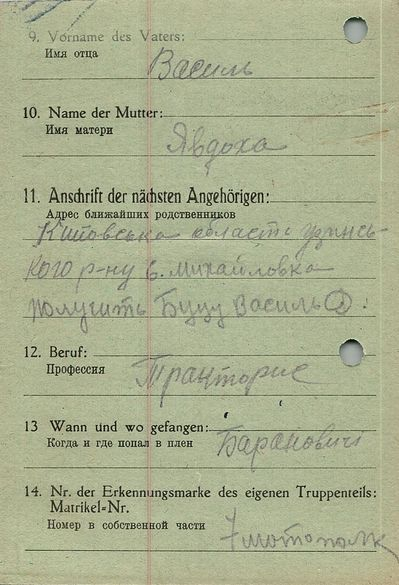 9. Vorname des Vaters:
Имя отца
Василь
10. Name der Mutter:
Имя матери
Явдоха
11. Anschrift der nächsten Angehörigen:
Адрес ближайших родственников
Київська область узинсь-
кого р-ну с. михайловка
получить Буцу Василь
12. Beruf:
Профессия
Тракторис
13 Wann und wo gefangen:
Когда и где попал в плен
Барановичі
14. Nr. der Erkennungsmarke des eigenen Truppenteils:
Matrikel-Nr.
Номер в собственной части
7 мотополк